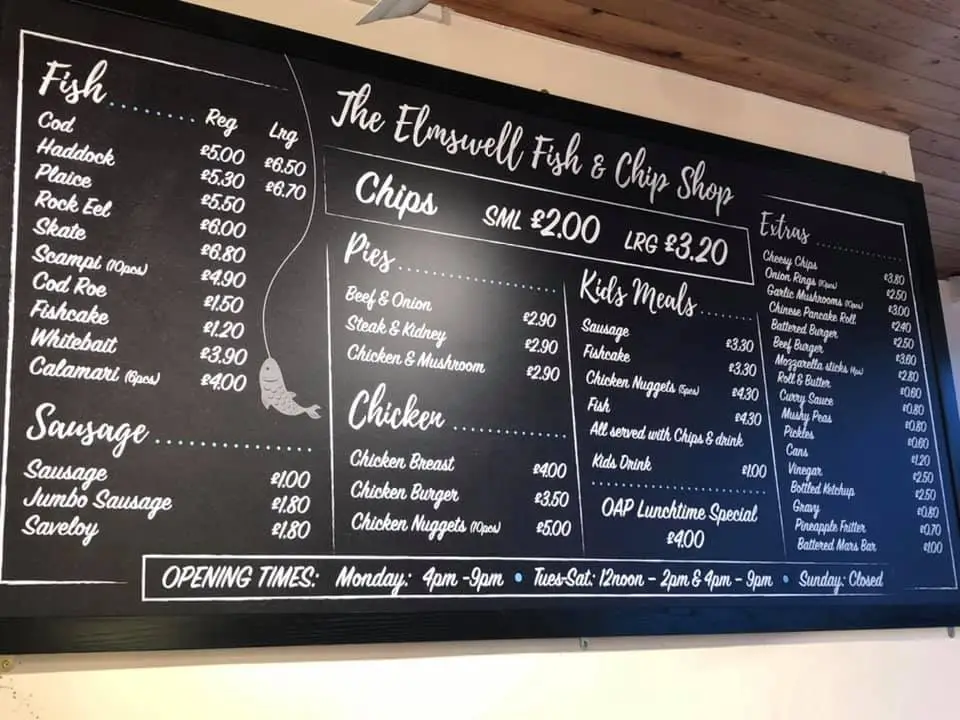 The Elmswell Fish & Chip Shop
Fish
Reg Lrg
Cod £5.00 £6.50
Haddock £5.30 £6.70
Plaice £5.50
Rock Eel £6.00
Skate £6.80
Scampi (10pcs) £4.90
Cod Roe £1.50
Fishcake £1.20
Whitebait £3.90
Calamari (6pcs) £4.00
Sausage
Sausage £1.00
Jumbo Sausage £1.80
Saveloy £1.80
Chips SML £2.00 LRG £3.20
Pies
Beef & Onion £2.90
Steak & Kidney £2.90
Chicken & Mushroom £2.90
Chicken
Chicken Breast £4.00
Chicken Burger £3.50
Chicken Nuggets (10pcs) £5.00
Kids Meals
Sausage £3.30
Fishcake £3.30
Chicken Nuggets (5pcs) £4.30
Fish £4.30
All served with Chips & drink
Kids Drink £1.00
OAP Lunchtime Special
£4.00
Extras
Cheesy Chips £3.80
Onion Rings (10pcs) £2.50
Garlic Mushrooms (10pcs) £3.00
Chinese Pancake Roll £2.40
Battered Burger £2.50
Beef Burger £3.60
Mozzarella sticks £2.80
Roll & Butter £0.60
Curry Sauce £0.80
Mushy Peas £0.80
Pickles £0.60
Cans £1.20
Vinegar £2.50
Bottled Ketchup £2.50
Gravy £0.80
Pineapple Fritter £0.70
Battered Mars Bar £1.00
OPENING TIMES: Monday: 4pm -9pm • Tues-Sat: 12noon - 2pm & 4pm - 9pm • Sunday: Closed